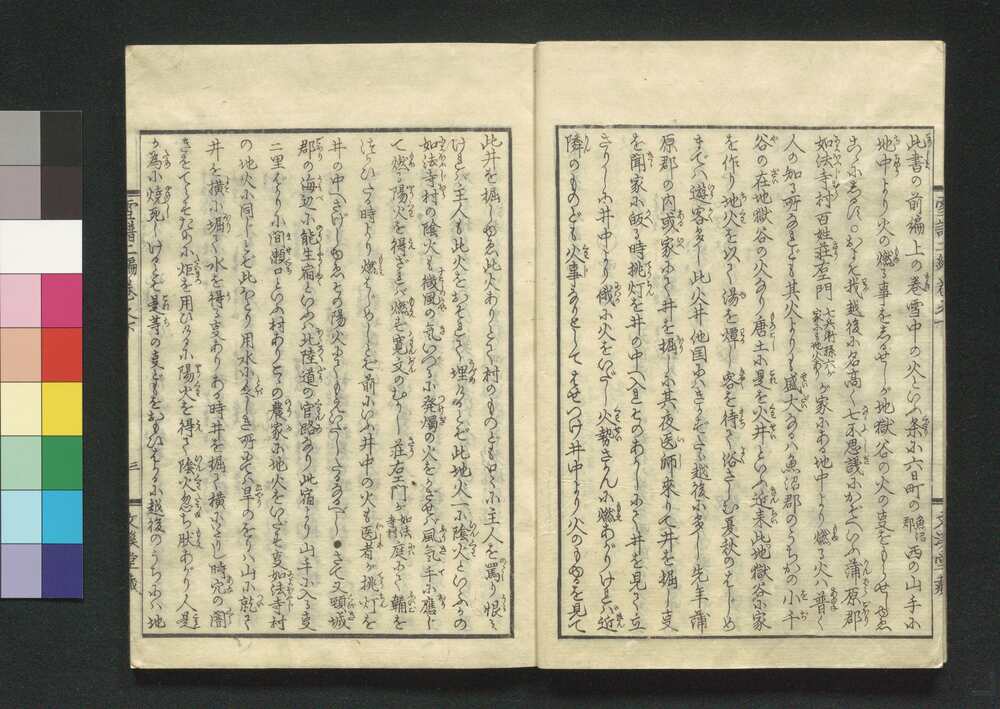 此書の前編上の巻雪中の火といふ条に六日町の魚沼郡西の山手に
地中より火の燃る事をしるせしが地獄谷の火の事をもらせしゆゑ
こゝにしるす。我越後に名高く七不思議にかぞへいふ蒲原郡
如法寺村百姓荘右エ門七兵衛孫六が家にも地火あり が家にある地中より燃る火は普く
人の知る所なれども其火よりも盛大なるは魚沼郡のうちかの小千
谷の在地獄谷の火なり唐土に是を火井といふ近来此地獄谷に家
を作り地火を以て湯を燀し客を待て浴さしむ夏秋のはじめ
までは遊客多し此火井他国にはきかずたゞ越後に多し先年蒲
原郡の内或家にて井を掘しに其夜医師来りて井を掘し事
を聞家に皈る時挑灯を井の中へ入れそのあかしにて井を見て立
さりしに井中より俄に火をいだし火勢さかんに燃あがりければ近
隣のものども火事なりとしてはせつけ井中より火のもゆるを見て
此井を掘しゆゑ此火ありとて村のものども口々に主人を罵り恨み
ければ主人も此火をおそれて埋けるとぞ此地火一に陰火といふかの
如法寺村の陰火も微風の気いづるに発燭の火をかざせば風気手に應じ
て燃る陽火を得ざれば燃ず寛文のむかし荘右エ門が如法寺村庭にて鞴を
つかひたる時より燃はじめしとぞ前にいふ井中の火も医者が挑灯を
井の中へさげしゆゑその陽火にてもえいだしたるなるべし●さて又頸城
郡の海辺に能生宿といふは北陸道の官路なり此宿より山手に入る事
二里ばかりに間瀬口といふ村ありこゝの農家に地火をいだす事如法寺村
の地火に同じとぞ此ほとり用水に乏しき所ゆゑ旱のをりは山に就て
井を横に堀て水を得る事ありある時井を掘て横にいたりし時穴の闇
きをてらすために炬を用ひけるに陽火を得て陰火忽ち然あがり人是
が為に焼死しけるとぞ是等の事どもをおもひはかるに越後のうちには地
雪譜二編巻之一
三
文溪堂蔵